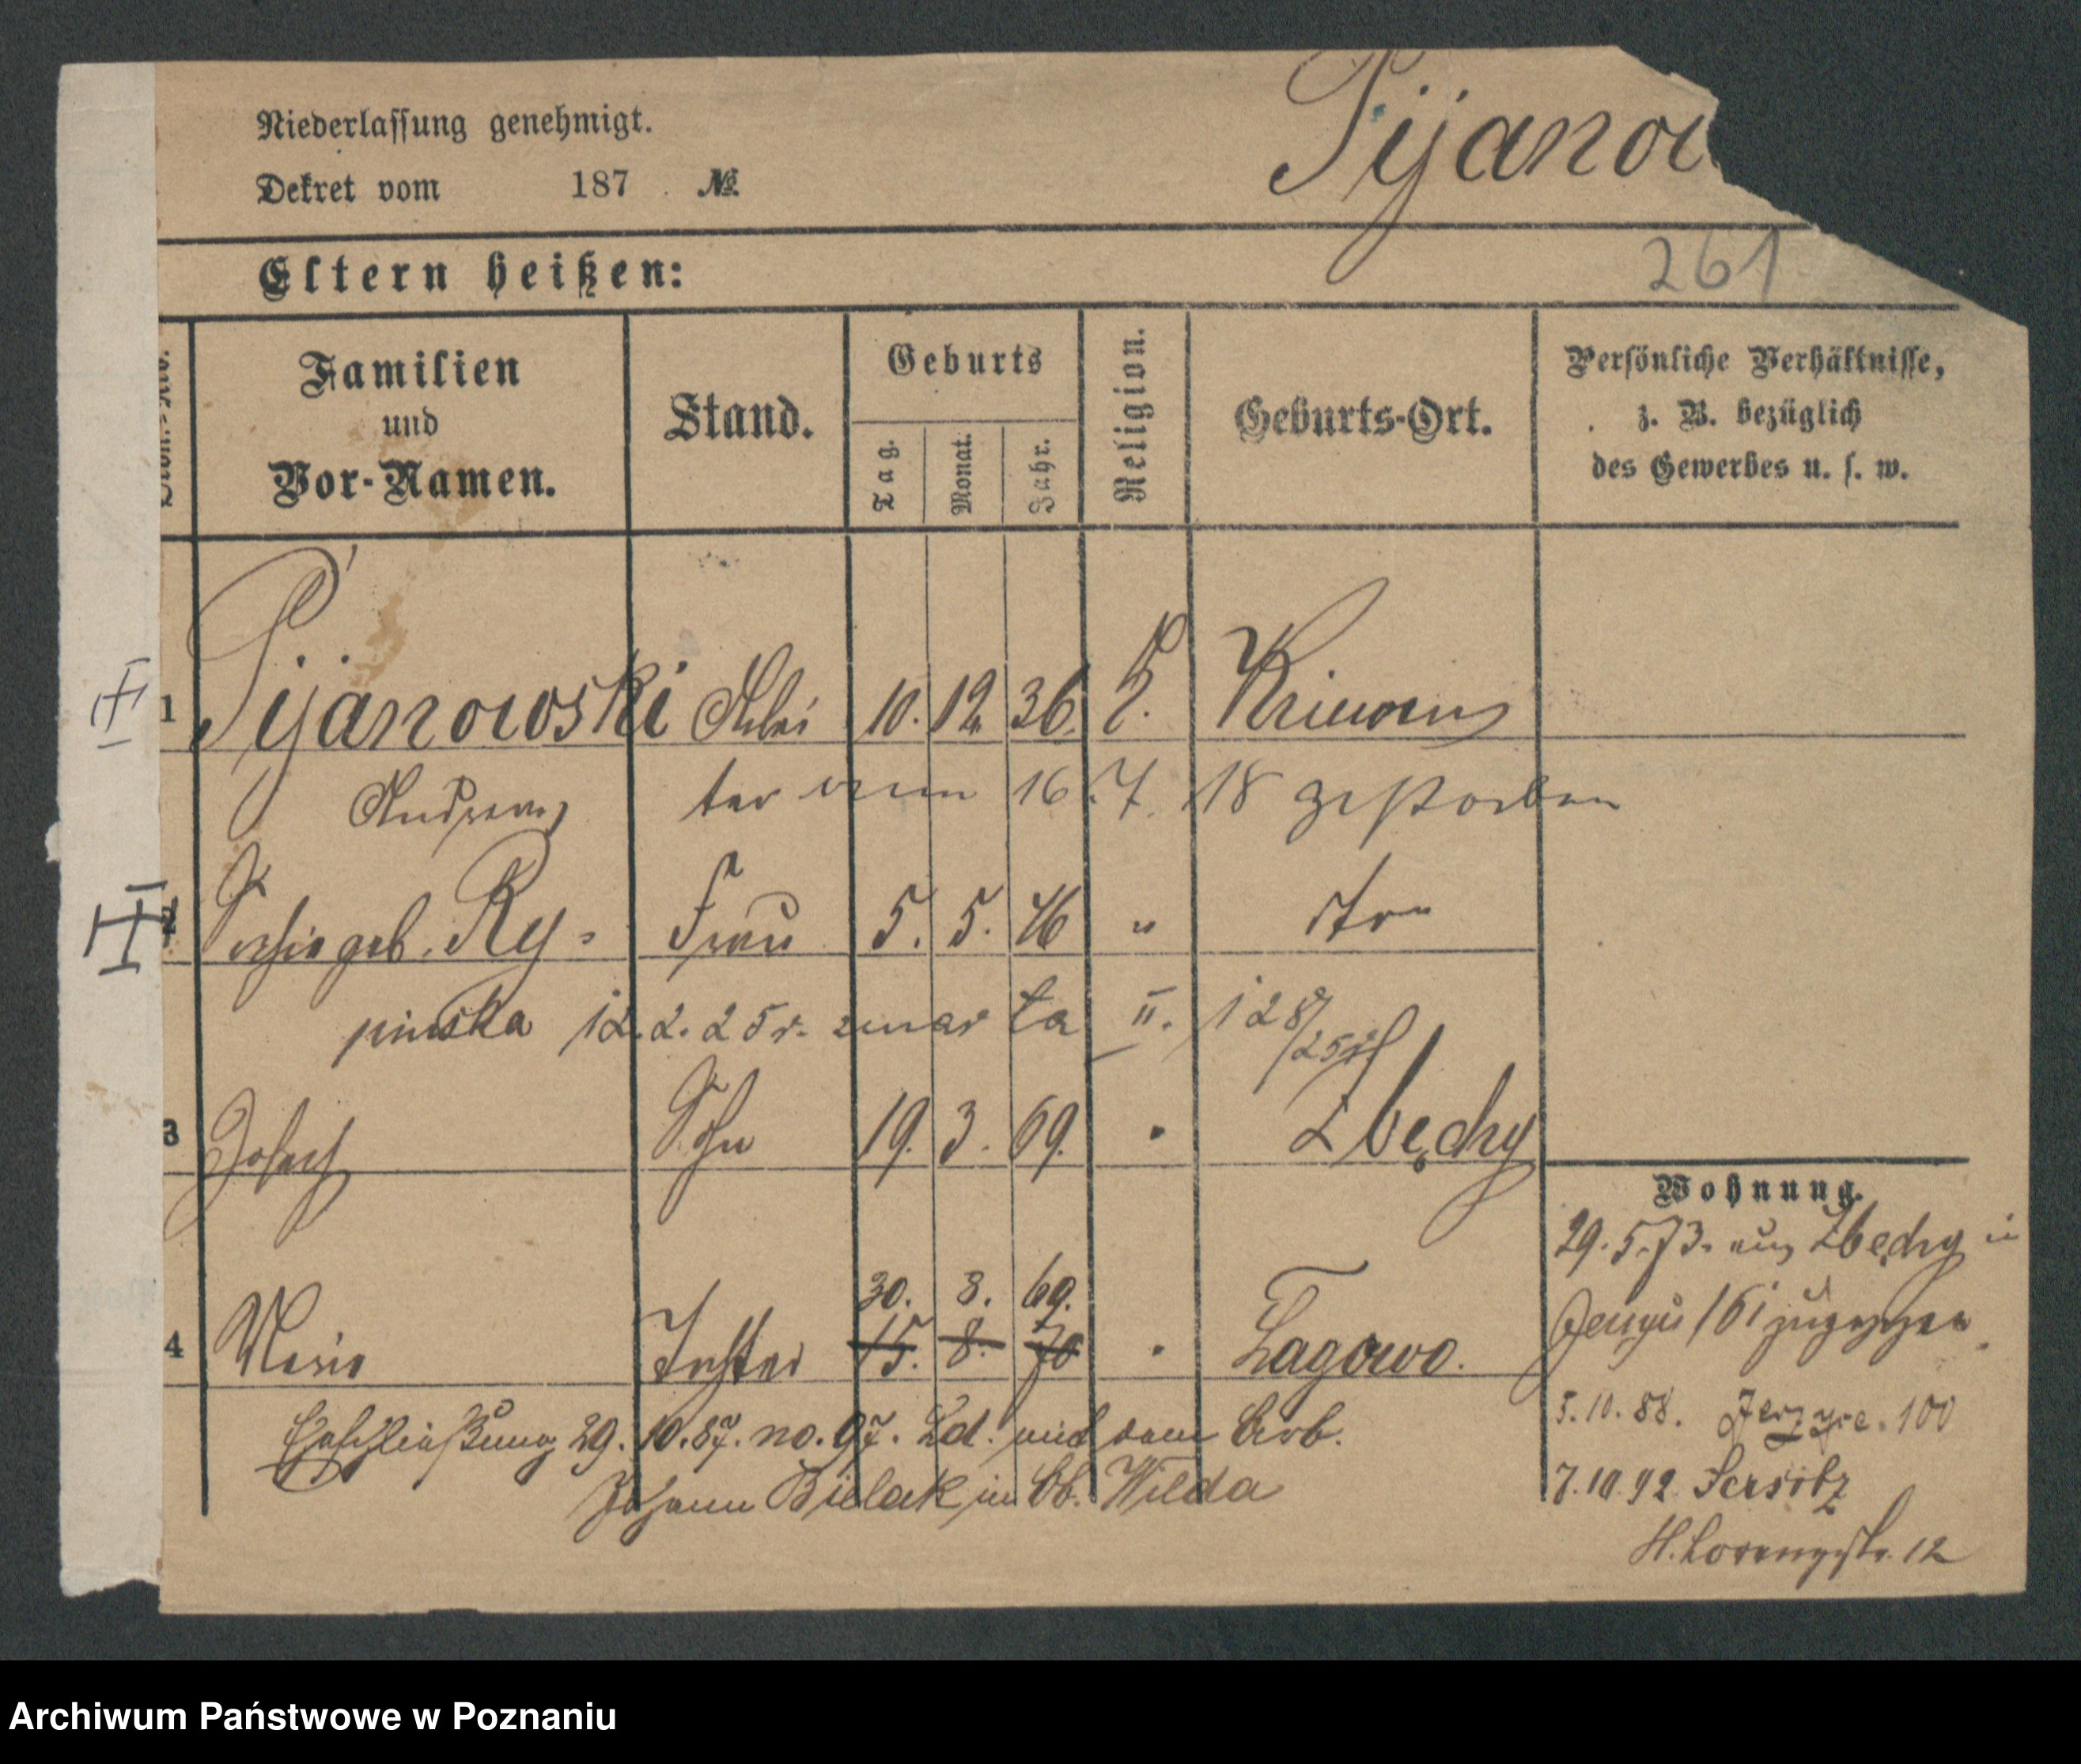 Pijanow
Niederlassung genehmigt.
Dekret vom 187 . №
261
Eltern heißen:
Familien
und
Vor-Namen.
Stand.
Geburts
Tag.
Monat.
Jahr.
Religion.
Geburts-Ort.
Persönliche Verhältnisse,
z. B. bezüglich
des Gewerbes u. s. w.
1 Pijanowski Arbei 10. 12. 36. K. Kriewen
Andreas ter 16. 7. 18 gestorben
2 geb. Ry- Frau 5. 5. 46 "
pinska 12. 2. 25 r. zmarła II. 128/25
3 Josef Sohn 19. 3. 69. " Zbęchy
Wohnung.
29. 5. 73. aus Zbęchy in
Jerzyce 161 zugezogen
30. 8. 69.
4 Maria Tochter 15. 8. 70 " Łagowo.
Eheschließung 29. 10. 87. no. 97. Ld. mit dem Arb.
Johann Bielak in Ob. Wilda
5. 10. 88. 100
7. 10. 92. Jersitz
H. Lorenzstr. 12
Archiwum Państwowe w Poznaniu